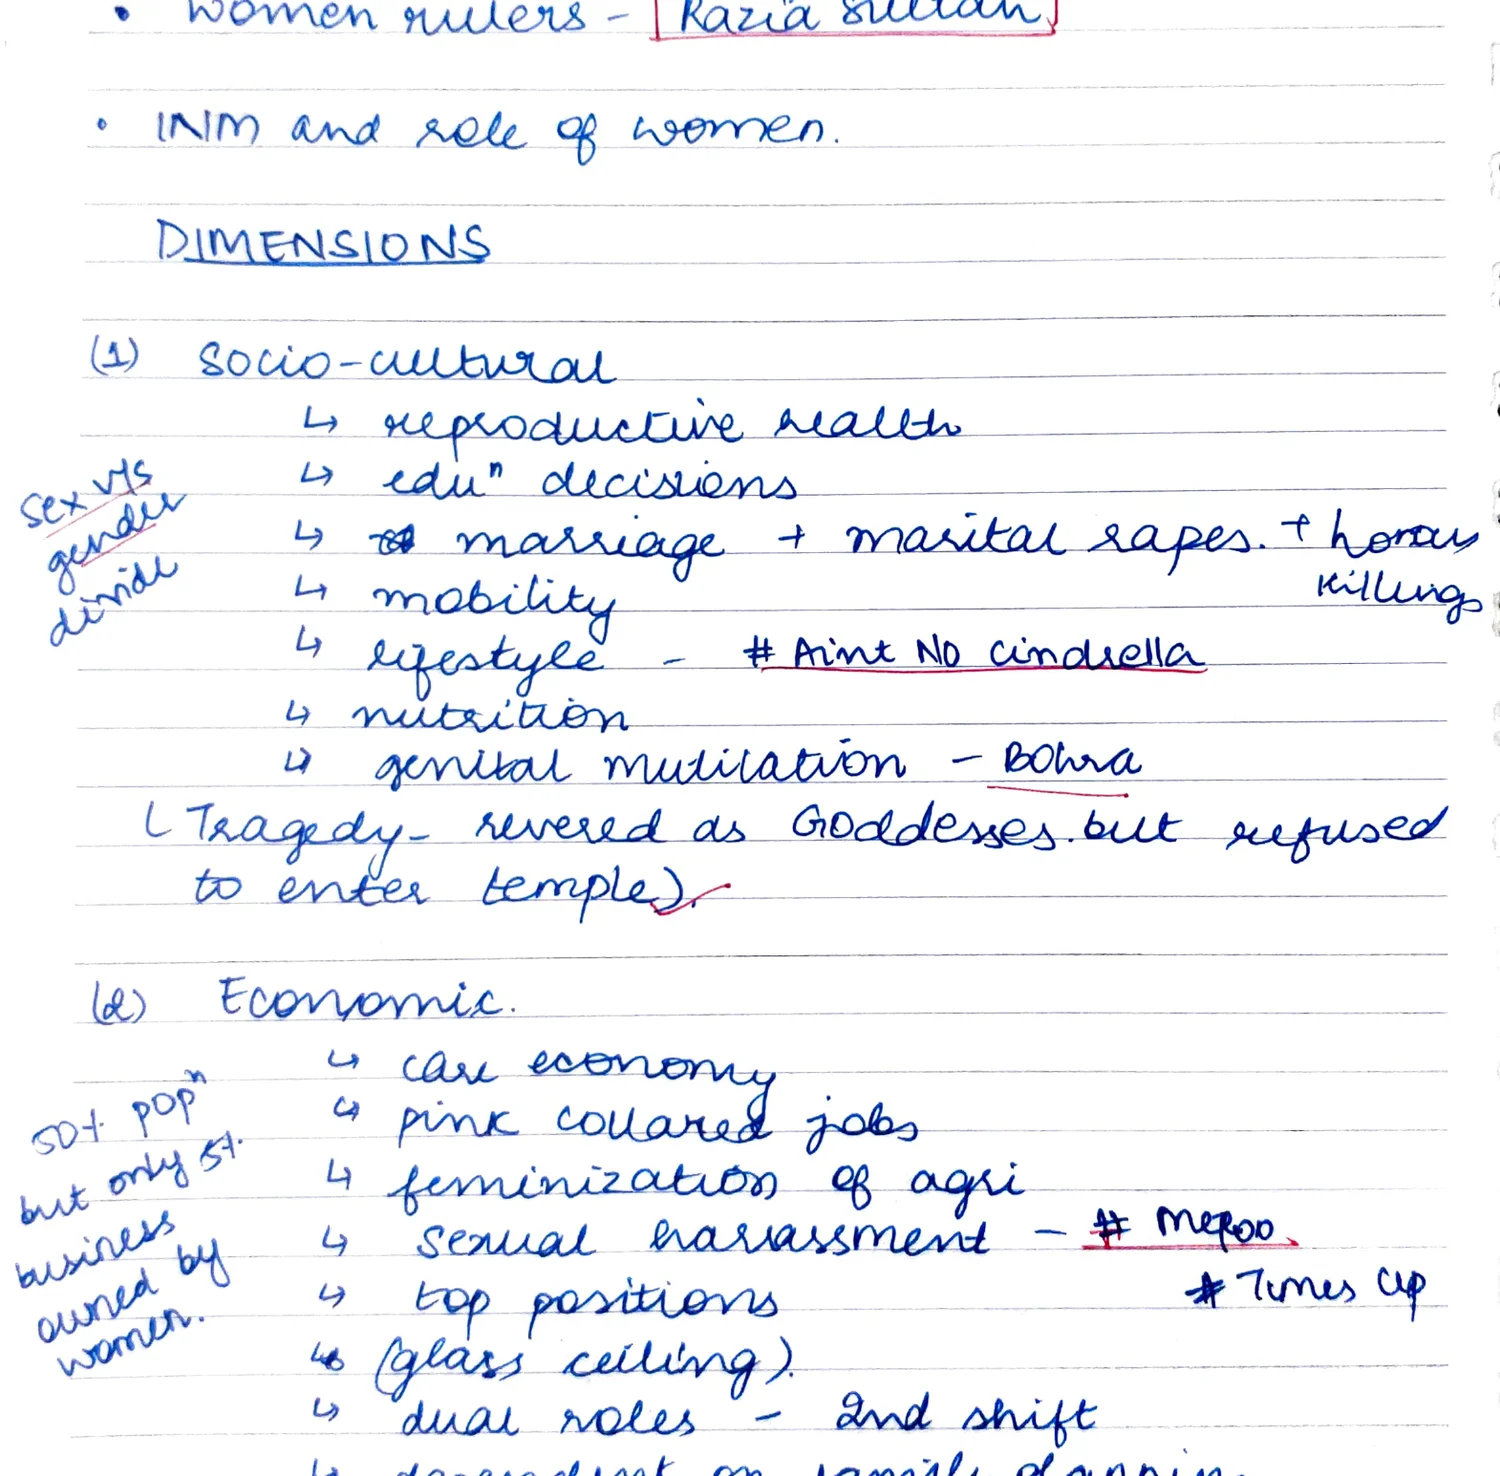 • Women rulers - Razia Sultan
• INM and role of women.
DIMENSIONS
(1) Socio-cultural
↳ reproductive health
↳ eduⁿ decisions
↳ marriage + marital rapes. + honour killings
↳ mobility
↳ lifestyle - # Aint No Cindrella
↳ nutrition
↳ genital mutilation - Bohra
(Tragedy - revered as Goddesses but refused
to enter temple).
sex v/s
gender
divide
(2) Economic.
↳ care economy
↳ pink collared jobs
↳ feminization of agri
↳ sexual harrassment - # Metoo
# Times Up
↳ top positions
↳ (glass ceiling)
↳ dual roles - 2nd shift
↳ dependent on family
50% popⁿ
but only 5%
business
owned by
women.